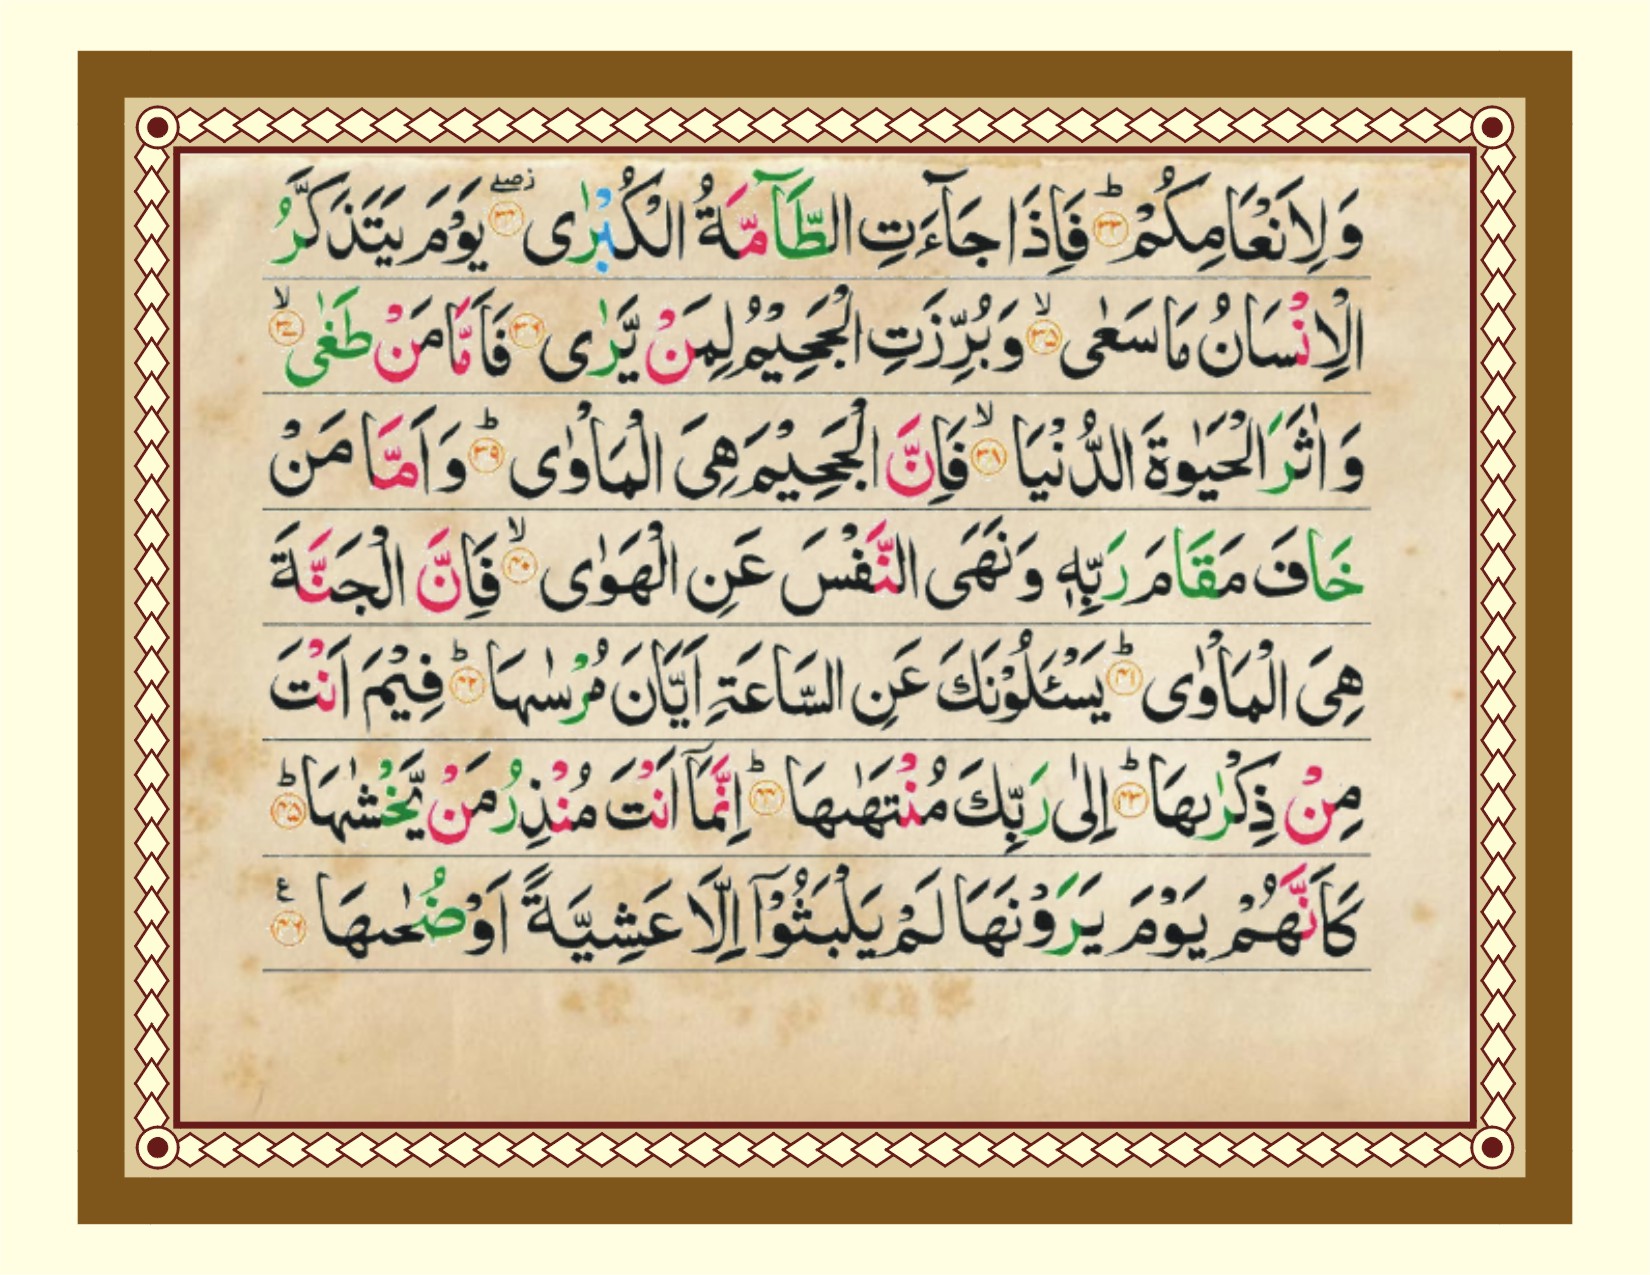 وَلِاَنْعَامِكُمْ ؕ ﴿۳۳﴾ فَاِذَا جَآءَتِ الطَّآمَّةُ الْكُبْرٰى ﴿۳۴﴾ۖؗ يَوْمَ يَتَذَكَّرُ
الْاِنْسَانُ مَا سَعٰى ۙ ﴿۳۵﴾ وَبُرِّزَتِ الْجَحِيْمُ لِمَنْ يَّرٰى ﴿۳۶﴾ فَاَمَّا مَنْ طَغٰى ۙ ﴿۳۷﴾
وَ اٰثَرَ الْحَيٰوةَ الدُّنْيَا ۙ ﴿۳۸﴾ فَاِنَّ الْجَحِيْمَ هِىَ الْمَاْوٰى ؕ ﴿۳۹﴾ وَ اَمَّا مَنْ
خَافَ مَقَامَ رَبِّهٖ وَنَهَى النَّفْسَ عَنِ الْهَوٰى ۙ ﴿۴۰﴾ فَاِنَّ الْجَنَّةَ
هِىَ الْمَاْوٰى ؕ ﴿۴۱﴾ يَسْـَٔلُوْنَكَ عَنِ السَّاعَةِ اَيَّانَ مُرْسٰىهَا ؕ ﴿۴۲﴾ فِيْمَ اَنْتَ
مِنْ ذِكْرٰىهَا ؕ ﴿۴۳﴾ اِلٰى رَبِّكَ مُنْتَهٰىهَا ؕ ﴿۴۴﴾ اِنَّمَاۤ اَنْتَ مُنْذِرُ مَنْ يَّخْشٰىهَا ؕ ﴿۴۵﴾
كَاَنَّهُمْ يَوْمَ يَرَوْنَهَا لَمْ يَلْبَثُوْۤا اِلَّا عَشِيَّةً اَوْ ضُحٰىهَا ﴿۴۶﴾ ع